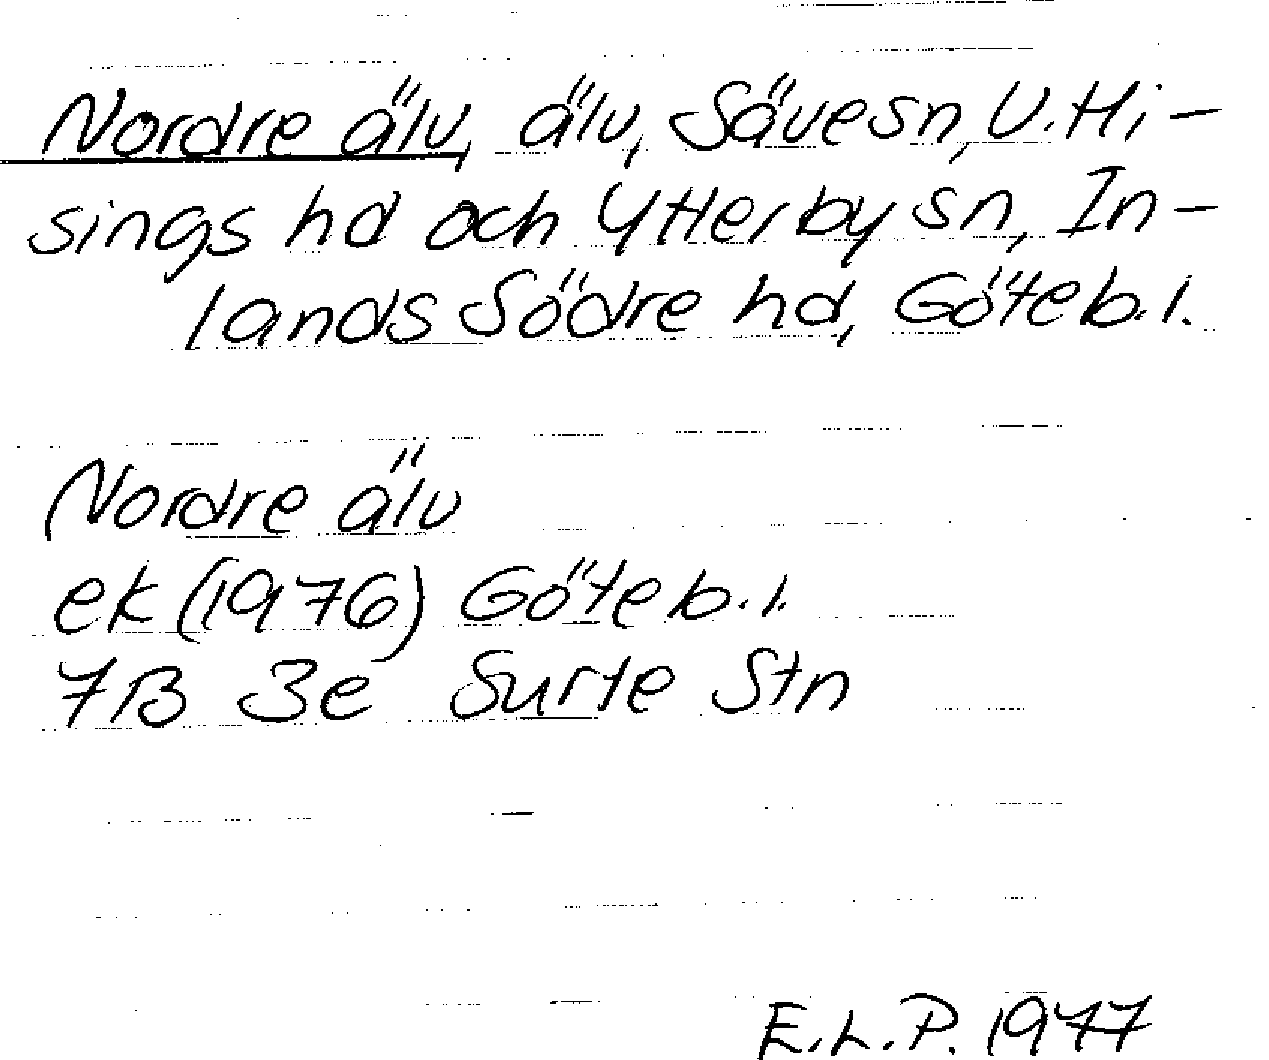 Nordre älv, älv, Säve sn, V. Hi-
sings hd och Ytterby sn, In-
lands Södre hd, Göteb. l.
Nordre älv
ek (1976) Göteb. l.
7B 3e Surte Stn
E.L.P. 1977